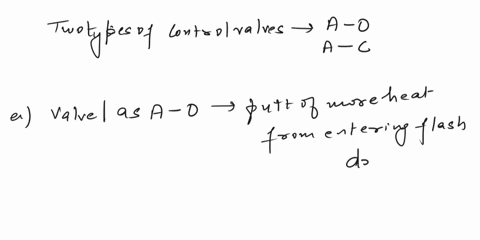 Two types of control valves → A-O
A-C
a) Valve 1 as A-O → putt of more heat
from entering flash
do